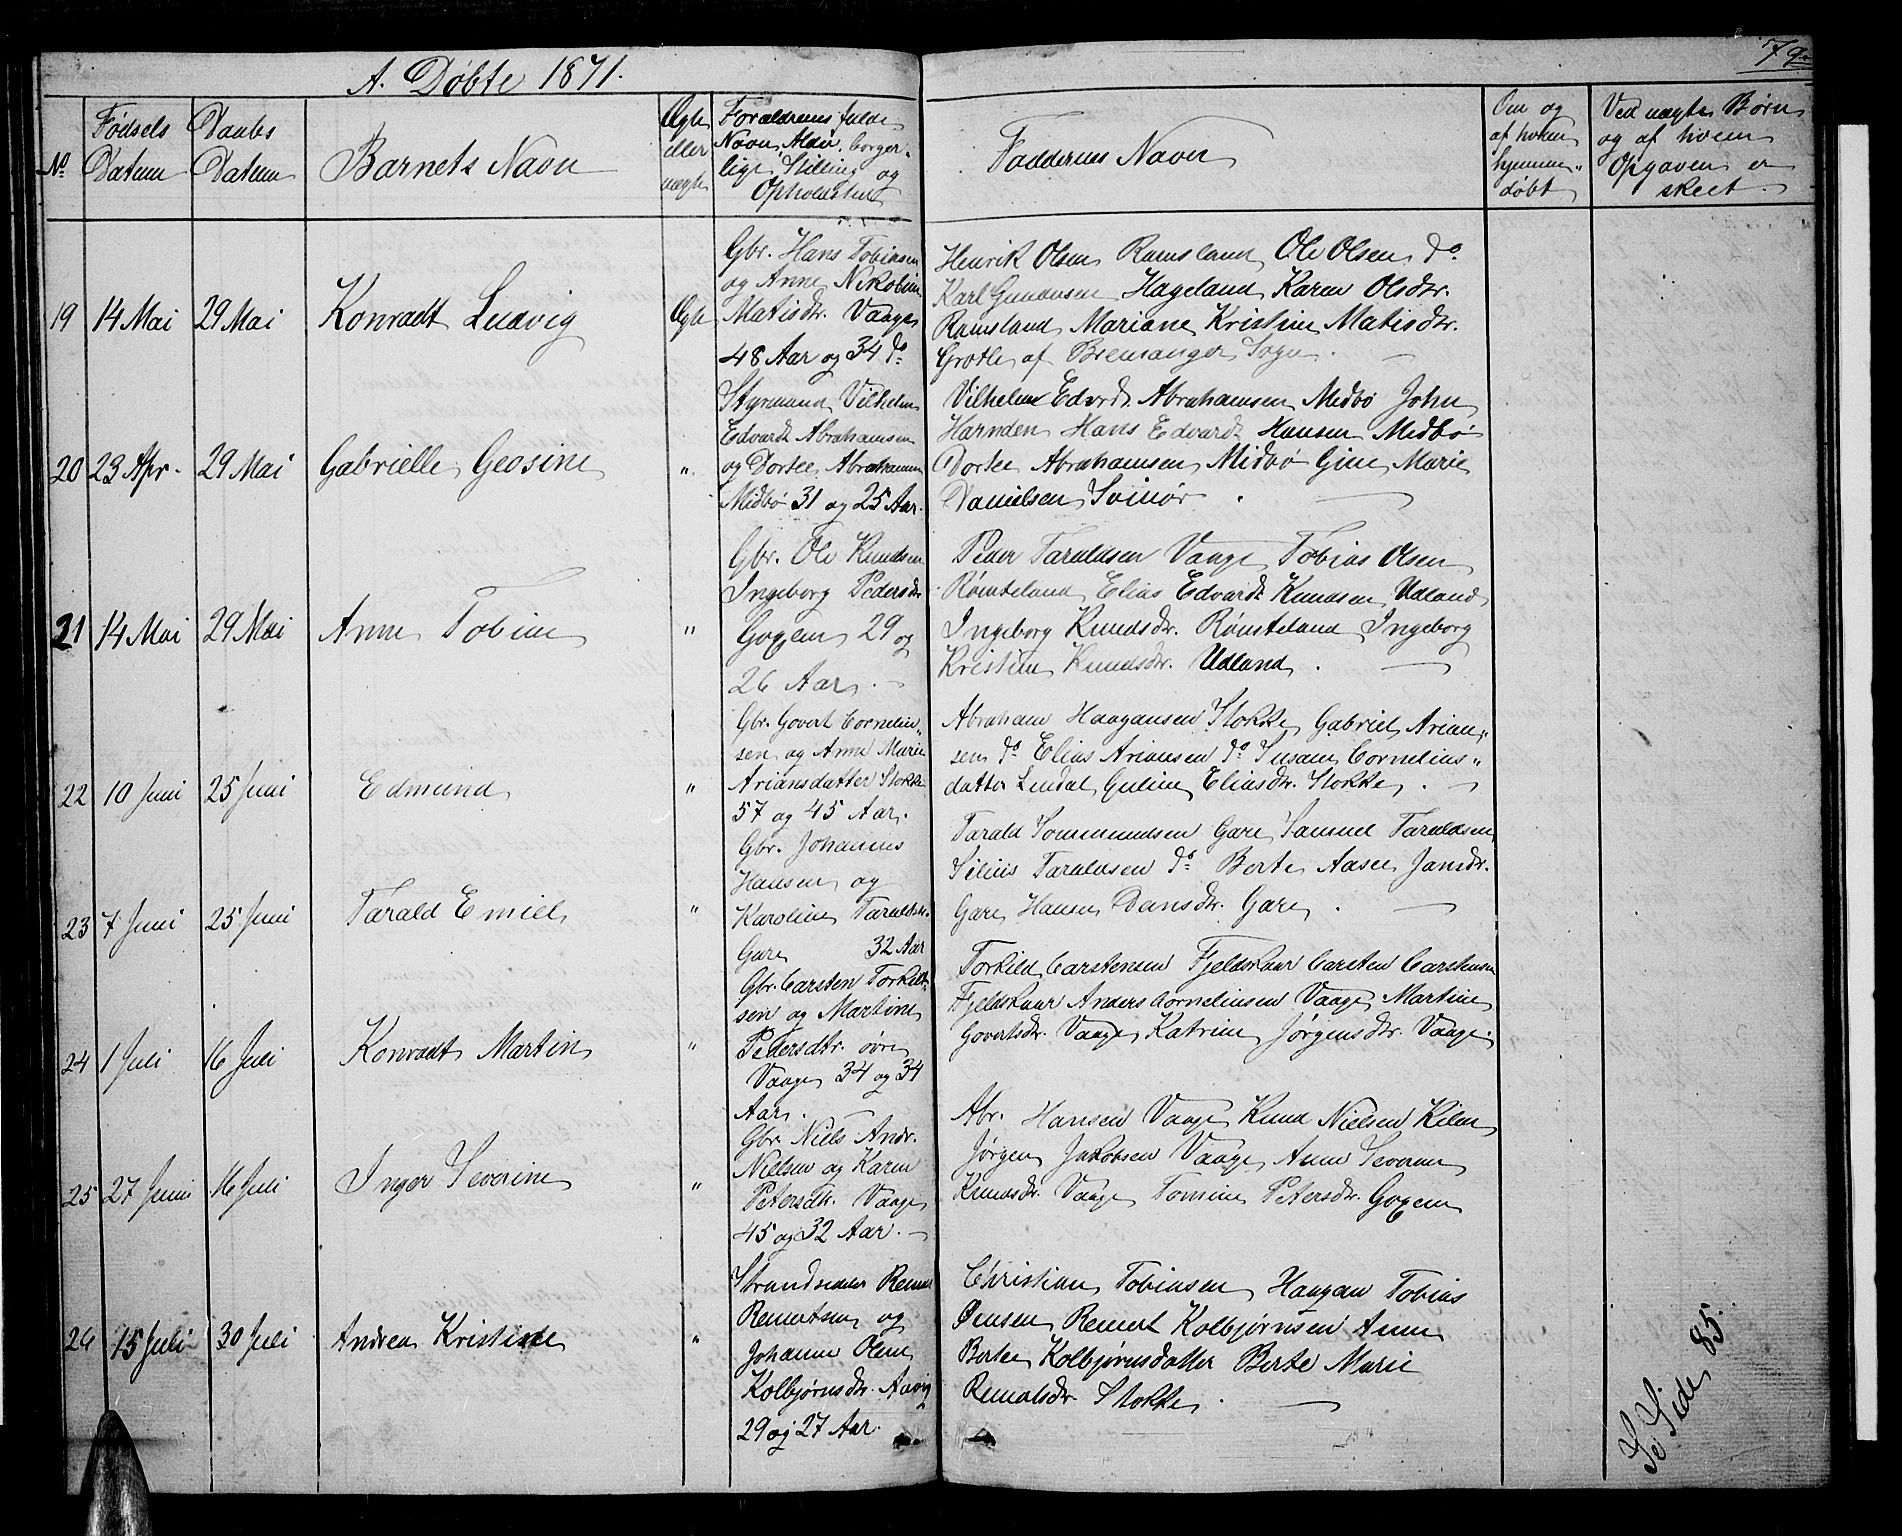 A. Døbte 1871.
79.
No.
Fødsels Datum
Daabs Datum
Barnets Navn
Ægte eller uægte
Forældrenes fulde
Navn, Alder, borger-
lige Stilling og
Opholdssted
Faddernes Navn
Om og
af hvem
hjemme-
døbt
Ved uægte Børn
og af hvem
Opgaven er
skeet.
19
14 Mai
29 Mai
Konradt Ludvig
Ægte
Gbr. Hans Tobiasen
og Anne Nikoline
Matisdtr. Vaage
48 Aar og 34 do
Henrik Olsen Ramsland Ole Olsen do
Karl Gundersen Hageland Karen Olsdtr.
Ramsland Mariane Kristine Matisdtr.
Grotle af Bremanger Sogn.
20
23 Apr.
29 Mai
Gabrielle Geosine
"
Styrmand Vilhelm
Edvardt Abrahamsen
og Dortee Abrahamsen
Midbø 31 og 25 Aar.
Vilhelm Edvrdt. Abrahamsen Midbø John
Harnden Hans Edvardt Hansen Midbø
Dortee Abrahamsen Midbø Gine Marie
Danielsen Svinør.
21
14 Mai
29 Mai
Anne Tobine
"
Gbr. Ole Knudsen
Ingeborg Pedersdtr
Goxem 29 og
26 Aar.
Peder Taraldsen Vaage Tobias Olsen
Rømteland Elias Edvardt Knudsen Udland
Ingeborg Knudsdtr. Rømteland Ingeborg
Kristine Knudsdtr. Udland.
22
10 Juni
25 Juni
Edmund
"
Gbr. Govert Corneliu-
sen og Anne Marie
Ariansdatter Stokke
57 og 45 Aar.
Abraham Haagansen Stokke Gabriel Arian-
sen do Elias Ariansen do Susane Cornelius-
datter Lindal Guline Eliasdtr. Stokke.
23
7 Juni
25 Juni
Tarald Emiel
"
Gbr. Johannes
Hansen og
Karoline Taraldsdtr.
Gare 32 Aar
Tarald Sommundsen Gare Samuel Taraldsen
Silius Taraldsen do Berte Aasee Jansdtr.
Gare Hansen Dansdtr. Gare.
24
1 Juli
16 Juli
Konradt Martin
"
Gbr. Carsten Torkild-
sen og Martine
Pedersdtr. øvre
Vaage 34 og 34
Aar.
Torkild Carstensen Fjeldskaar Carsten Carstensen
Fjeldskaar Anders Cornelinsen Vaage Martine
Govertsdtr. Vaage Katrine Jørgensdtr. Vaage.
25
27 Juni
16 Juli
Inger Severine
"
Gbr. Niels Andr.
Nielsen og Karen
Petersdtr. Vaage
45 og 32 Aar.
Abr. Hansen Vaage Knud Nielsen Kilen
Jørgen Jakobsen Vaage Anne Severine
Knudsdtr. Vaage Tomine Petersdtr. Goxem
26
15 Juli
30 Juli
Andrea Kristine
"
Strandsidder Remert
Remertsen og
Johanne Olene
Kolbjørnsdtr. Aavig
29 og 27 Aar.
Christian Tobiasen Haagan Tobias
Øensen Remert Kolbjørnsen Anne
Bertee Kolbjørnsdatter Berte Marie
Remertsdtr. Stokke.
Se Side 85.